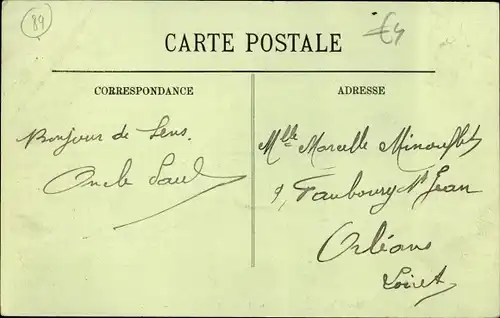 89
€4
CARTE POSTALE
CORRESPONDANCE
ADRESSE
Bonjour de Sens.
Oncle Paul
Mlle Marcelle
9, Faubourg St Jean
Orléans
Loiret